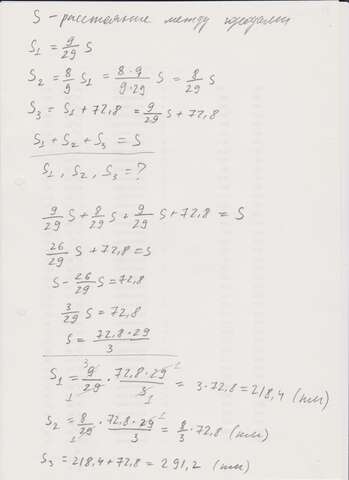 S - расстояние между городами
S₁ = 9/29 S
S₂ = 8/9 S₁ = 8·9/9·29 S = 8/29 S
S₃ = S₁ + 72,8 = 9/29 S + 72,8
S₁ + S₂ + S₃ = S
S₁, S₂, S₃ = ?
9/29 S + 8/29 S + 9/29 S + 72,8 = S
26/29 S + 72,8 = S
S - 26/29 S = 72,8
3/29 S = 72,8
S = 72,8·29/3
S₁ = 9/29 · 72,8·29/3 = 3·72,8 = 218,4 (км)
S₂ = 8/29 · 72,8·29/3 = 8/3 · 72,8 (км)
S₃ = 218,4 + 72,8 = 291,2 (км)